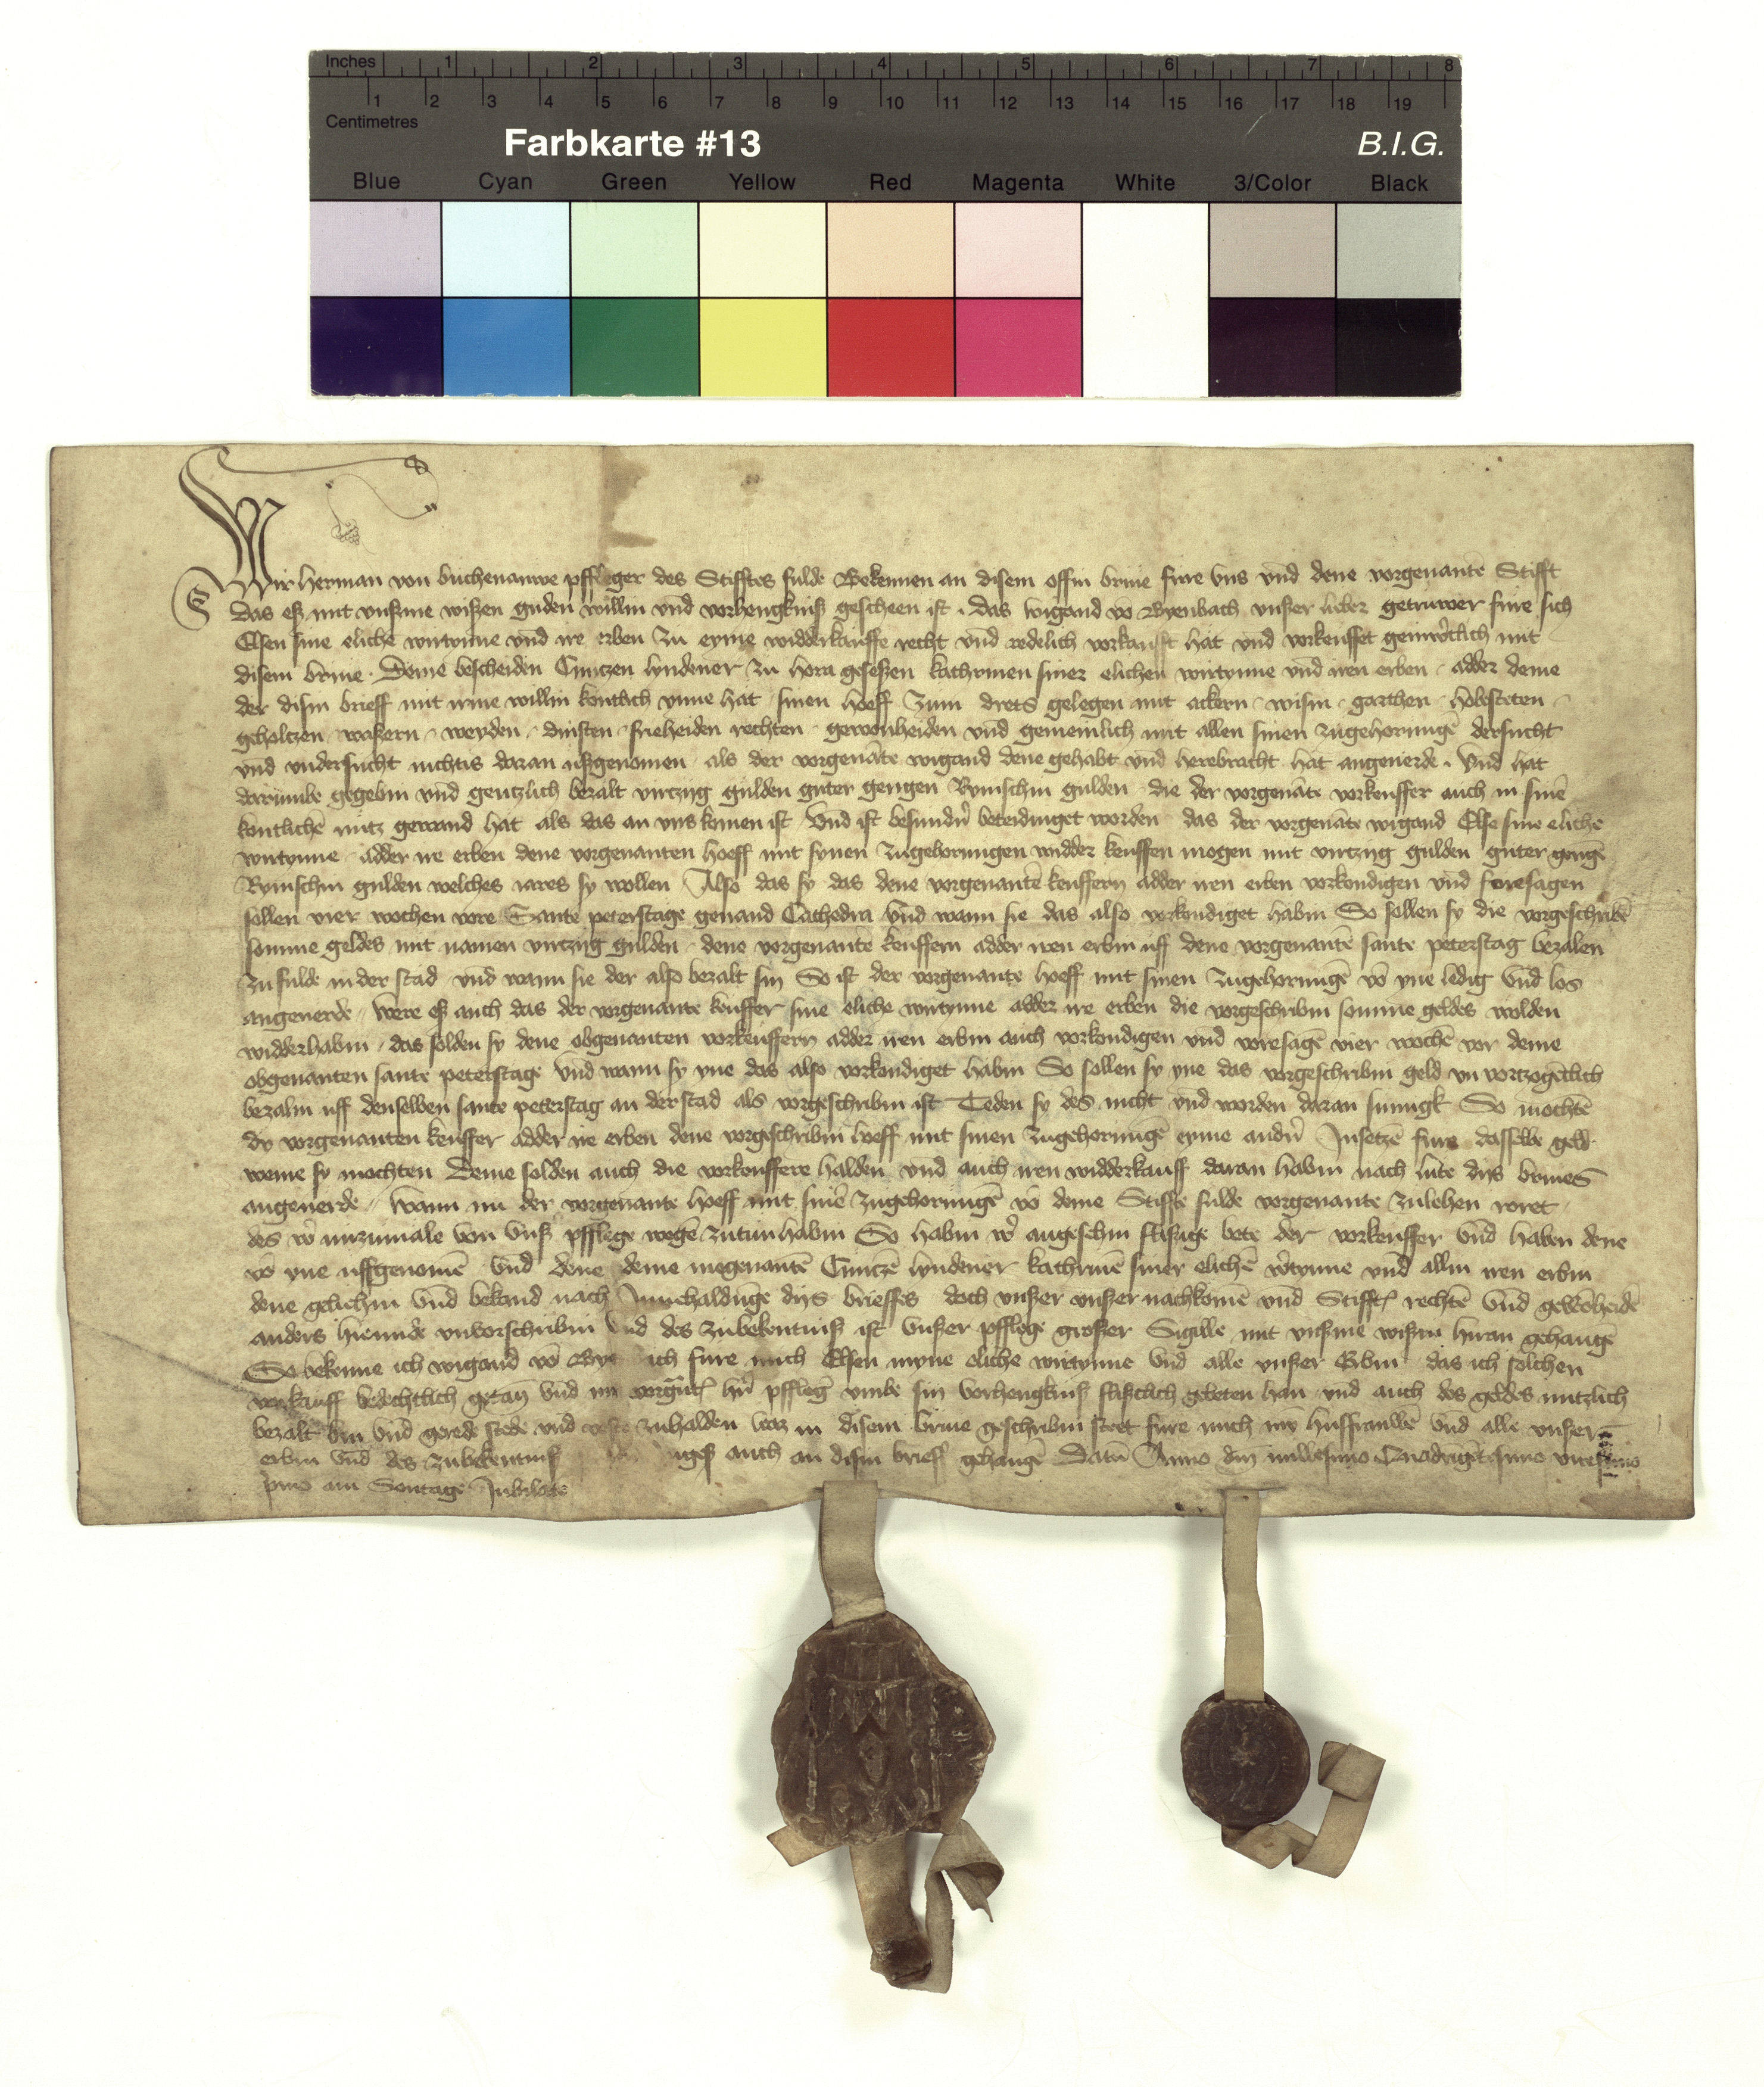 Inches 1 2 3 4 5 6 7 8
1 2 3 4 5 6 7 8 9 10 11 12 13 14 15 16 17 18 19
Centimetres
Farbkarte #13 B.I.G.
Blue Cyan Green Yellow Red Magenta White 3/Color Black
Wir herman von buchenauwe pffleger des Stifftes fulde Bekennen an disem offin briue fure vns vnd dene vorgenantē Stifft
das eß mit vnßme wißen guden willin vnd vorhengkniß gescheen ist das wigand vō vnßer lieber getruwer fure sich
Elsen sine elichē wirtynne vnd ire erben zu eyme widderkauffe recht vnd redelich vorkaufft hat vnd vorkeuffet mit
disem briue Deme bescheiden Cuntzen lyndener zu hora geseßen kathrinen siner elichen wirtynne vnd iren erben adder deme
der disin brieff mit irme willin kontlich ynne hat sinen hoeff zum drets gelegen mit ackern wisin garthen hobesteten
geholtzen waßern weyden dinsten frieheiden rechten gewonheiden vnd gemeinlich mit allen sinen zugehorungē dersucht
vnd vndersucht nichtis daran ußgenomen als der vorgenāte wigand dene gehabt vnd herebracht hat angeuerde Vnd hat
darūmbe gegebin vnd gentzlich bezalt virtzig gulden guter gengen Rynischin gulden die der vorgenāte vorkeuffer auch in sinē
kontlichē nutz gewand hat als das an vns komen ist Vnd ist beteidinget worden das der vorgenāte wigand Else sine eliche
wirtynne adder ire erben dene vorgenanten hoeff mit synen zugehorungen widder keuffen mogen mit virtzig gulden guter gengē
Rynischin gulden welches iares sy wollen Also das sy das dene vorgenantē keuffern adder iren erben vorkondigen vnd foresagen
sollen vier wochen vore Sante peterstage genand Cathedra vnd wann sie das also vorkondiget habin So sollen sy die vorgeschribē
somme geldes mit namen virtzig gulden dene vorgenante keuffern adder iren erbin uff dene vorgenantē sante peterstag bezalen
zu fulde in der stad vnd wann sie der also bezalt sin So ist der vorgenante hoeff mit sinen zugehorungē vō yne ledig vnd los
angeuerde Were eß auch das der vorgenante keuffer sine eliche wirtynne adder ire erben die vorgeschribin somme geldes wolden
widderhabin das solden sy dene obgenanten vorkeuffern adder iren erbin auch vorkondigen vnd voresagē vier wochē vor deme
obgenanten sante peterstage Vnd wann sy yne das also vorkondiget habin So sollen sy yne das vorgeschribin geld vn vortzogēlich
bezalin uff denselben sante peterstag an der stad als vorgeschribin ist Teden sy des nicht vnd worden daran sumigk So mochtē
dy vorgenanten keuffer adder ire erben dene vorgeschribin hoeff mit sinen zugehorungē eyme Insetzē fure dasselbe geld
weme sy mochten Deme solden auch die vorkeuffere halden vnd auch iren widderkauff daran habin nach lute diß briues
angeuerde Wann nu der vorgenante hoeff mit sinē zugehorungē vō deme Stiffte fulde vorgenante zulehen roret
des nuzumale von vnß pfflege wegē zutun habin So habin angesehin flißige bete der vorkeuffer Vnd haben dene
vō yne uffgenomē Vnd dene deme egenantē Cuntzē lyndener kathrinē siner elichē vnd allin iren erbin
dene geliehin vnd bekand nach Innehaldūge diß brieffes doch vnßer vnßer nachkomē vnd Stifft rechtē vnd gewōheidē
anders hirinde vnvorschribin Vnd des zubekentniß ist vnßer pfflege großer Sigille mit vnßme wißin hiran gehangē
So bekenne ich wigand vō ich fure mich Elsen myne elichē wirtynne Vnd alle vnßer Erbin das ich solchen
vorkauff bedechtlich getan Vnd pfflegr̄ vmbe sin vorhengkniß flißiclich gebeten han vnd auch des geldes nutzlich
bezalt bin vnd gerede stede vnd veste zuhalden waz in disem briue geschribin stet fure mich husfrauwē Vnd alle vnßer
erbin Vnd des zubekentniß auch an disin brieff gehangē Datū Anno dn̄i millesimo Quadrigētesimo vicesimo
pmo am Sontage Jubilate